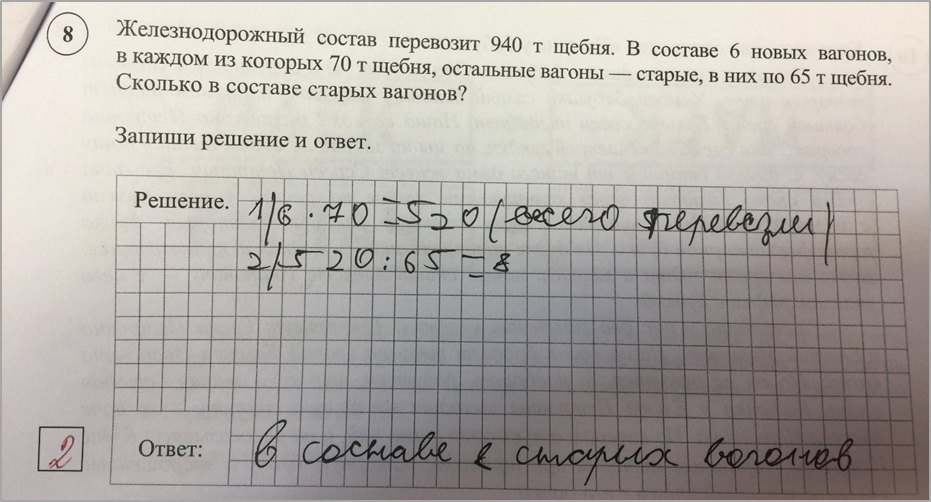 8
Железнодорожный состав перевозит 940 т щебня. В составе 6 новых вагонов,
в каждом из которых 70 т щебня, остальные вагоны — старые, в них по 65 т щебня.
Сколько в составе старых вагонов?
Запиши решение и ответ.
Решение. 1) 6 · 70 = 520 (всего перевезли)
2) 520 : 65 = 8
2 Ответ: в составе 8 старых вогонов